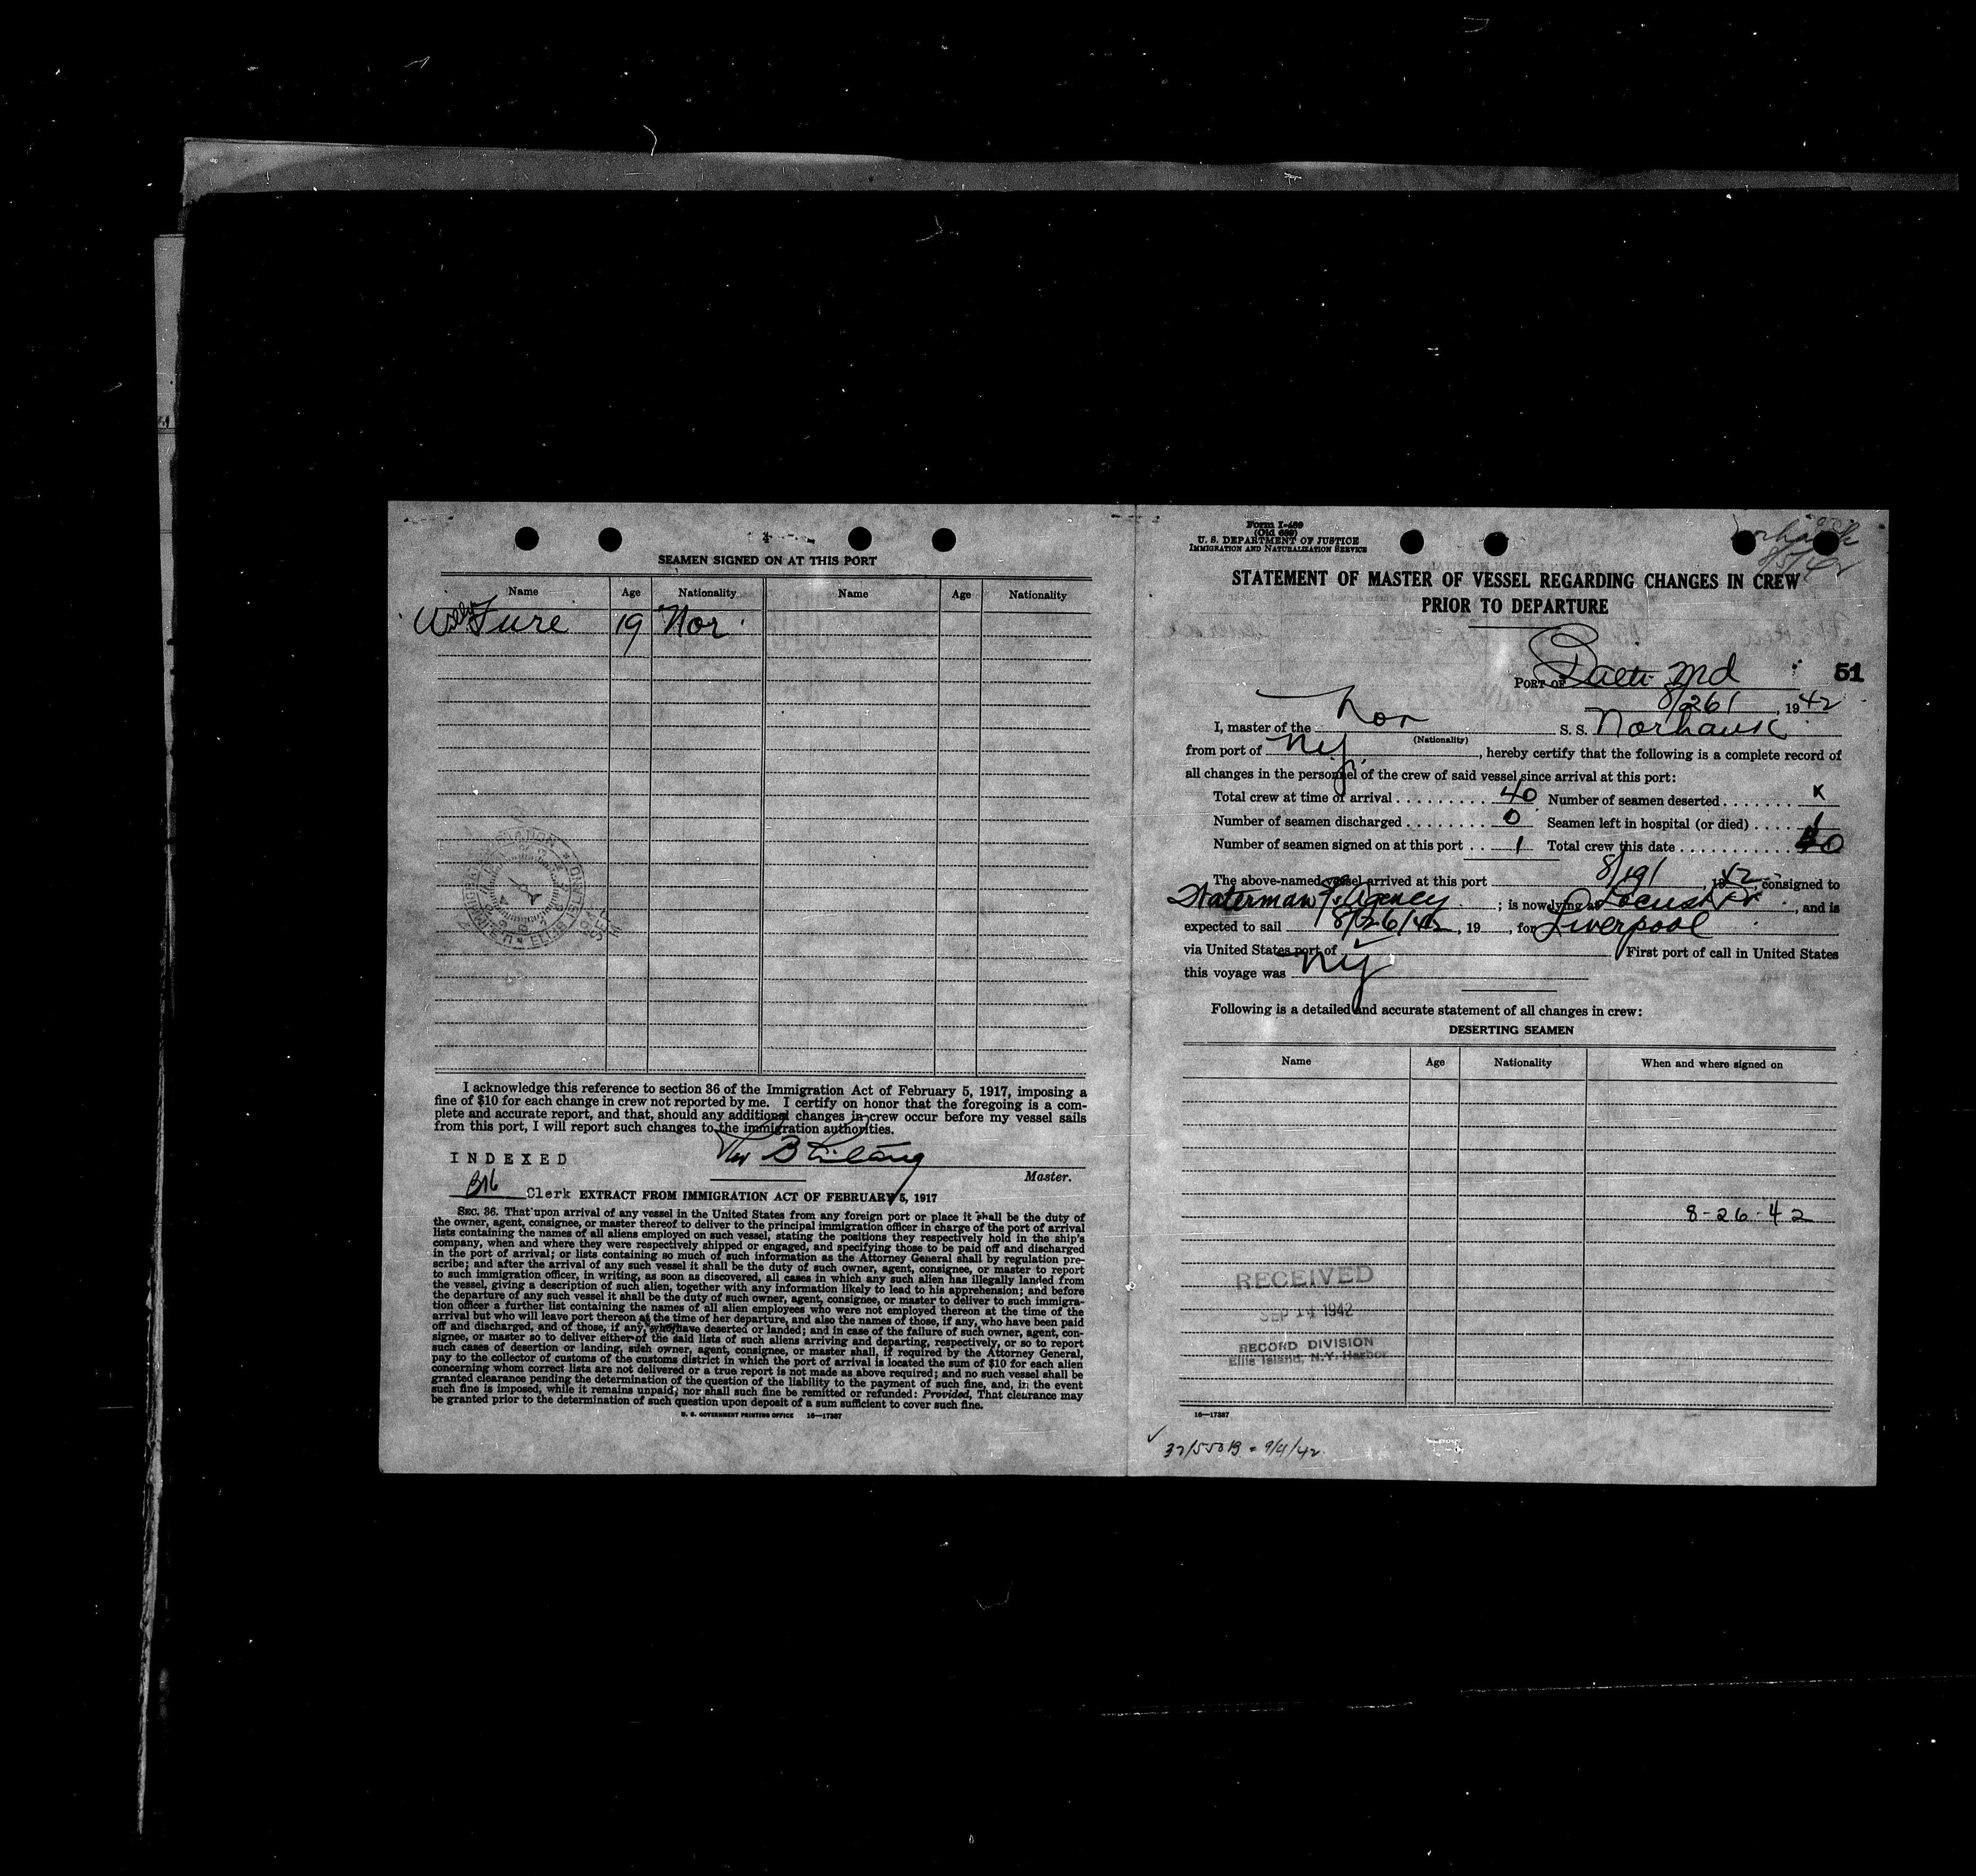 SEAMEN SIGNED ON AT THIS PORT
Name Age Nationality Name Age Nationality
Willy Fure 19 Nor
I acknowledge this reference to section 36 of the Immigration Act of February 5, 1917, imposing a
fine of $10 for each change in crew not reported by me. I certify on honor that the foregoing is a com-
plete and accurate report, and that, should any additional changes in crew occur before my vessel sails
from this port, I will report such changes to the immigration authorities.
INDEXED
Master.
Clerk EXTRACT FROM IMMIGRATION ACT OF FEBRUARY 5, 1917
SEC. 36. That upon arrival of any vessel in the United States from any foreign port or place it shall be the duty of
the owner, agent, consignee, or master thereof to deliver to the principal immigration officer in charge of the port of arrival
lists containing the names of all aliens employed on such vessel, stating the positions they respectively hold in the ship's
company, when and where they were respectively shipped or engaged, and specifying those to be paid off and discharged
in the port of arrival; or lists containing so much of such information as the Attorney General shall by regulation pre-
scribe; and after the arrival of any such vessel it shall be the duty of such owner, agent, consignee, or master to report
to such immigration officer, in writing, as soon as discovered, all cases in which any such alien has illegally landed from
the vessel, giving a description of such alien, together with any information likely to lead to his apprehension; and before
the departure of any such vessel it shall be the duty of such owner, agent, consignee, or master to deliver to such immigra-
tion officer a further list containing the names of all alien employees who were not employed thereon at the time of the
arrival but who will leave port thereon at the time of her departure, and also the names of those, if any, who have been paid
off and discharged, and of those, if any, who have deserted or landed; and in case of the failure of such owner, agent, con-
signee, or master so to deliver either of the said lists of such aliens arriving and departing, respectively, or so to report
such cases of desertion or landing, such owner, agent, consignee, or master shall, if required by the Attorney General,
pay to the collector of customs of the customs district in which the port of arrival is located the sum of $10 for each alien
concerning whom correct lists are not delivered or a true report is not made as above required; and no such vessel shall be
granted clearance pending the determination of the question of the liability to the payment of such fine, and, in the event
such fine is imposed, while it remains unpaid; nor shall such fine be remitted or refunded: Provided, That clearance may
be granted prior to the determination of such question upon deposit of a sum sufficient to cover such fine.
U. S. GOVERNMENT PRINTING OFFICE 16—17387
Form I-489
(Old 689)
U. S. DEPARTMENT OF JUSTICE
IMMIGRATION AND NATURALIZATION SERVICE
STATEMENT OF MASTER OF VESSEL REGARDING CHANGES IN CREW
PRIOR TO DEPARTURE
PORT OF Balti Md
51
8/26/, 1942
I, master of the Nor S. S. Norhauk
(Nationality)
from port of NY, hereby certify that the following is a complete record of
all changes in the personnel of the crew of said vessel since arrival at this port:
Total crew at time of arrival 40 Number of seamen deserted X
Number of seamen discharged 0 Seamen left in hospital (or died) 1
Number of seamen signed on at this port 1 Total crew this date 40
The above-named vessel arrived at this port 8/19/, 1942, consigned to
Waterman SS Agency; is now lying at Locust Pt, and is
expected to sail 8/26/42, 19, for Liverpool
via United States port of First port of call in United States
this voyage was NY
Following is a detailed and accurate statement of all changes in crew:
DESERTING SEAMEN
Name Age Nationality When and where signed on
8-26-42
RECEIVED
SEP 14 1942
RECORD DIVISION
Ellis Island, N.Y. Harbor
16—17387